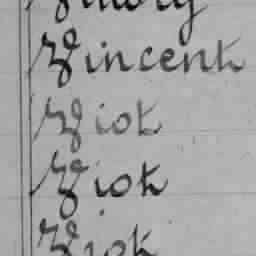 Vincent
Viot
Viot
Viot